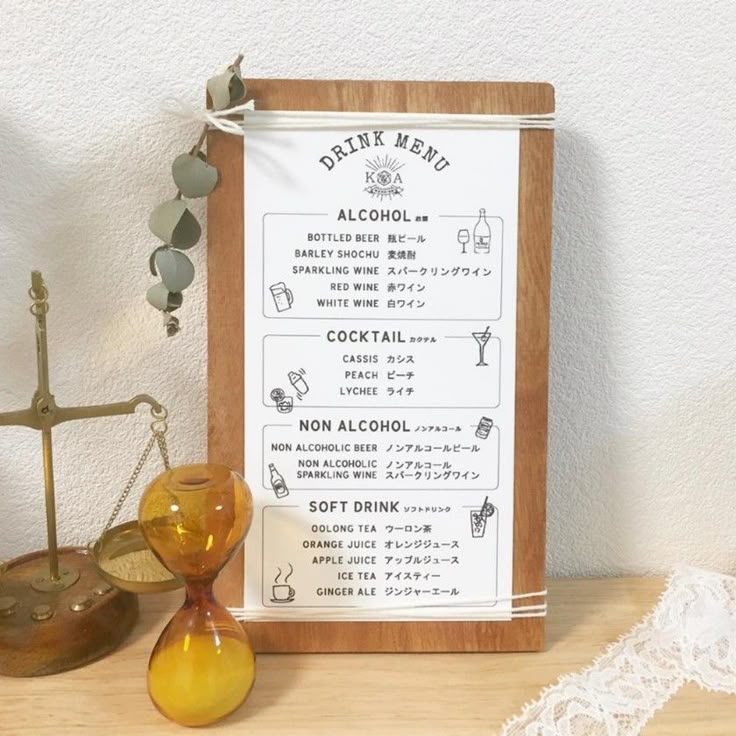 DRINK MENU
K A
ALCOHOL お酒
BOTTLED BEER 瓶ビール
BARLEY SHOCHU 麦焼酎
SPARKLING WINE スパークリングワイン
RED WINE 赤ワイン
WHITE WINE 白ワイン
COCKTAIL カクテル
CASSIS カシス
PEACH ピーチ
LYCHEE ライチ
NON ALCOHOL ノンアルコール
NON ALCOHOLIC BEER ノンアルコールビール
NON ALCOHOLIC ノンアルコール
SPARKLING WINE スパークリングワイン
SOFT DRINK ソフトドリンク
OOLONG TEA ウーロン茶
ORANGE JUICE オレンジジュース
APPLE JUICE アップルジュース
ICE TEA アイスティー
GINGER ALE ジンジャーエール